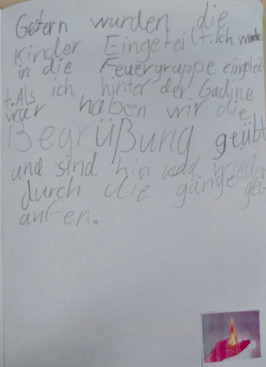 Gestern wurden die
Kinder Eingeteilt. Ich wurde
in die Feuergruppe eingeteil
t. Als ich hinter der Gadine
war haben wir die
Begrüßung geübt
und sind hin und wieder
durch die günge gel
aufen.